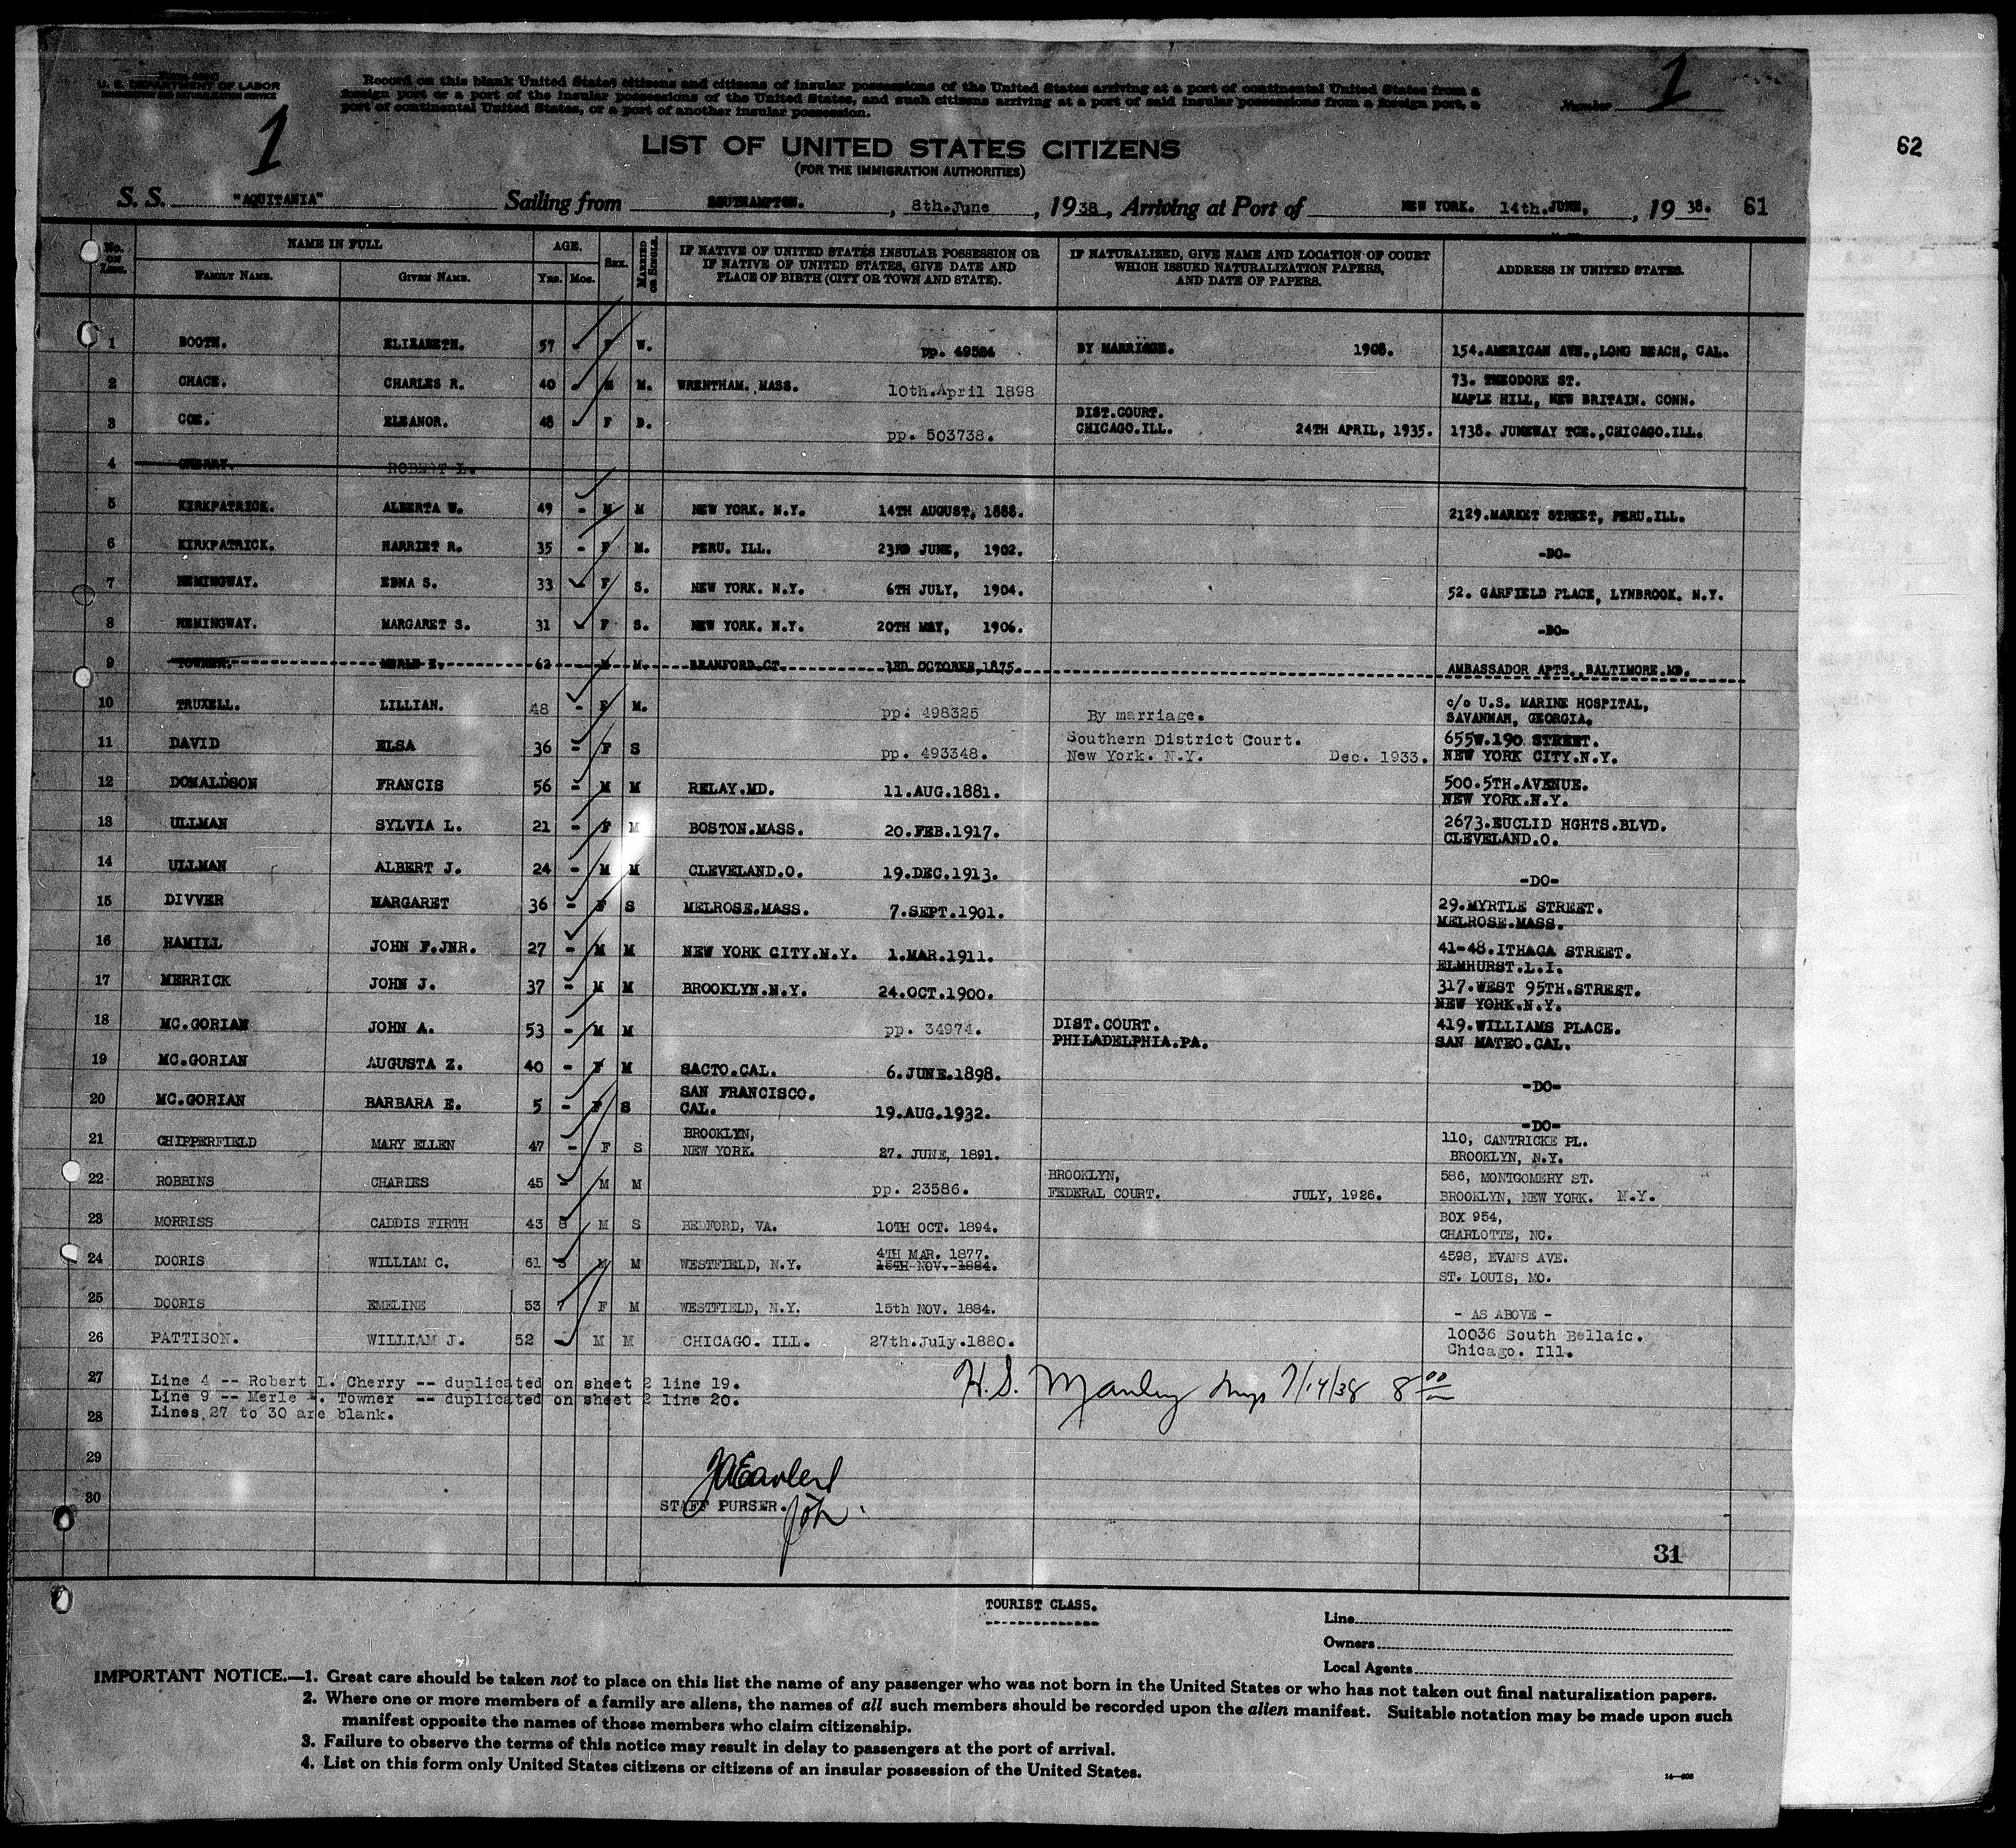 U. S. DEPARTMENT OF LABOR
IMMIGRATION AND NATURALIZATION SERVICE
Record on this blank United States citizens and citizens of insular possessions of the United States arriving at a port of continental United States from a
foreign port or a port of the insular possessions of the United States, and such citizens arriving at a port of said insular possessions from a foreign port, a
port of continental United States, or a port of another insular possession.
Number 1
1
62
LIST OF UNITED STATES CITIZENS
(FOR THE IMMIGRATION AUTHORITIES)
S. S. "AQUITANIA" Sailing from SOUTHAMPTON. , 8th.June , 1938, Arriving at Port of NEW YORK. 14th.JUNE, , 19 38. 61
No. ON LIST. NAME IN FULL AGE. SEX. MARRIED OR SINGLE. IF NATIVE OF UNITED STATES INSULAR POSSESSION OR IF NATIVE OF UNITED STATES, GIVE DATE AND PLACE OF BIRTH (CITY OR TOWN AND STATE). IF NATURALIZED, GIVE NAME AND LOCATION OF COURT WHICH ISSUED NATURALIZATION PAPERS, AND DATE OF PAPERS. ADDRESS IN UNITED STATES.
FAMILY NAME. GIVEN NAME. Yrs. Mos.
1 BOOTH. ELIZABETH. 57 - F W. pp. 49584 BY MARRIAGE. 1908. 154.AMERICAN AVE.,LONG BEACH, CAL.
2 CHACE. CHARLES R. 40 - M M. WRENTHAM, MASS. 10th.April 1898 73. THEODORE ST.
MAPLE HILL, NEW BRITAIN. CONN.
3 COE. ELEANOR. 48 - F D. pp. 503738. DIST.COURT.
CHICAGO.ILL. 24TH APRIL, 1935. 1738. JUNEWAY TCE.,CHICAGO.ILL.
4 CHERRY. ROBERT L.
5 KIRKPATRICK. ALBERTA W. 49 - M M NEW YORK. N.Y. 14TH AUGUST, 1888. 2129.MARKET STREET, PERU.ILL.
6 KIRKPATRICK. HARRIET R. 35 - F M. PERU. ILL. 23RD JUNE, 1902. -DO-
7 HEMINGWAY. EDNA S. 33 - F S. NEW YORK. N.Y. 6TH JULY, 1904. 52. GARFIELD PLACE, LYNBROOK. N.Y.
8 HEMINGWAY. MARGARET S. 31 - F S. NEW YORK. N.Y. 20TH MAY, 1906. -DO-
9 TOWNER. MERLE E. 62 - M M. BRANFORD.CT. 3RD OCTOBER,1875. AMBASSADOR APTS.,BALTIMORE.MD.
10 TRUXELL. LILLIAN. 48 - F M. pp. 498325 By marriage. c/o U.S. MARINE HOSPITAL,
SAVANNAH, GEORGIA.
11 DAVID ELSA 36 - F S pp. 493348. Southern District Court.
New York. N.Y. Dec. 1933. 655W.190 STREET.
NEW YORK CITY.N.Y.
12 DONALDSON FRANCIS 56 - M M RELAY.MD. 11.AUG.1881. 500.5TH.AVENUE.
NEW YORK.N.Y.
13 ULLMAN SYLVIA L. 21 - F M BOSTON.MASS. 20.FEB.1917. 2673.EUCLID HGHTS.BLVD.
CLEVELAND.O.
14 ULLMAN ALBERT J. 24 - M M CLEVELAND.O. 19.DEC.1913. -DO-
15 DIVVER MARGARET 36 - F S MELROSE.MASS. 7.SEPT.1901. 29.MYRTLE STREET.
MELROSE.MASS.
16 HAMILL JOHN F.JNR. 27 - M M NEW YORK CITY.N.Y. 1.MAR.1911. 41-48.ITHACA STREET.
ELMHURST.L.I.
17 MERRICK JOHN J. 37 - M M BROOKLYN.N.Y. 24.OCT.1900. 317.WEST 95TH.STREET.
NEW YORK.N.Y.
18 MC.GORIAN JOHN A. 53 - M M pp. 34974. DIST.COURT.
PHILADELPHIA.PA. 419.WILLIAMS PLACE.
SAN MATEO.CAL.
19 MC.GORIAN AUGUSTA Z. 40 - F M SACTO.CAL. 6.JUNE.1898. -DO-
20 MC.GORIAN BARBARA E. 5 - F S SAN FRANCISCO.
CAL. 19.AUG.1932. -DO-
21 CHIPPERFIELD MARY ELLEN 47 - F S BROOKLYN,
NEW YORK. 27. JUNE, 1891. 110, CANTRICKE PL.
BROOKLYN, N.Y.
22 ROBBINS CHARIES 45 - M M pp. 23586. BROOKLYN,
FEDERAL COURT. JULY, 1926. 586, MONTGOMERY ST.
BROOKLYN, NEW YORK. N.Y.
23 MORRISS CADDIS FIRTH 43 8 M S BEDFORD, VA. 10TH OCT. 1894. BOX 954,
CHARLOTTE, NC.
24 DOORIS WILLIAM C. 61 3 M M WESTFIELD, N.Y. 4TH MAR. 1877.
15TH NOV. 1884. 4598, EVANS AVE.
ST. LOUIS, MO.
25 DOORIS EMELINE 53 7 F M WESTFIELD, N.Y. 15th NOV. 1884. - AS ABOVE -
26 PATTISON. WILLIAM J. 52 M M CHICAGO. ILL. 27th.July.1880. 10036 South Bellaic.
Chicago. Ill.
27 Line 4 -- Robert L. Cherry -- duplicated on sheet 2 line 19.
Line 9 -- Merle . Towner -- duplicated on sheet 2 line 20.
28 Lines 27 to 30 are blank.
H.S. Manley Insp 7/14/38 8 00
29
30
STAFF PURSER.
31
TOURIST CLASS.
Line
Owners
Local Agents
IMPORTANT NOTICE.—1. Great care should be taken not to place on this list the name of any passenger who was not born in the United States or who has not taken out final naturalization papers.
2. Where one or more members of a family are aliens, the names of all such members should be recorded upon the alien manifest. Suitable notation may be made upon such
manifest opposite the names of those members who claim citizenship.
3. Failure to observe the terms of this notice may result in delay to passengers at the port of arrival.
4. List on this form only United States citizens or citizens of an insular possession of the United States.